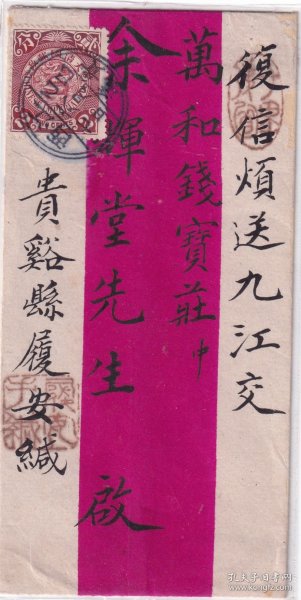 復信煩送九江交
萬和錢寶莊中
余暉堂先生 啟
貴谿縣履安緘
孔夫子旧书网